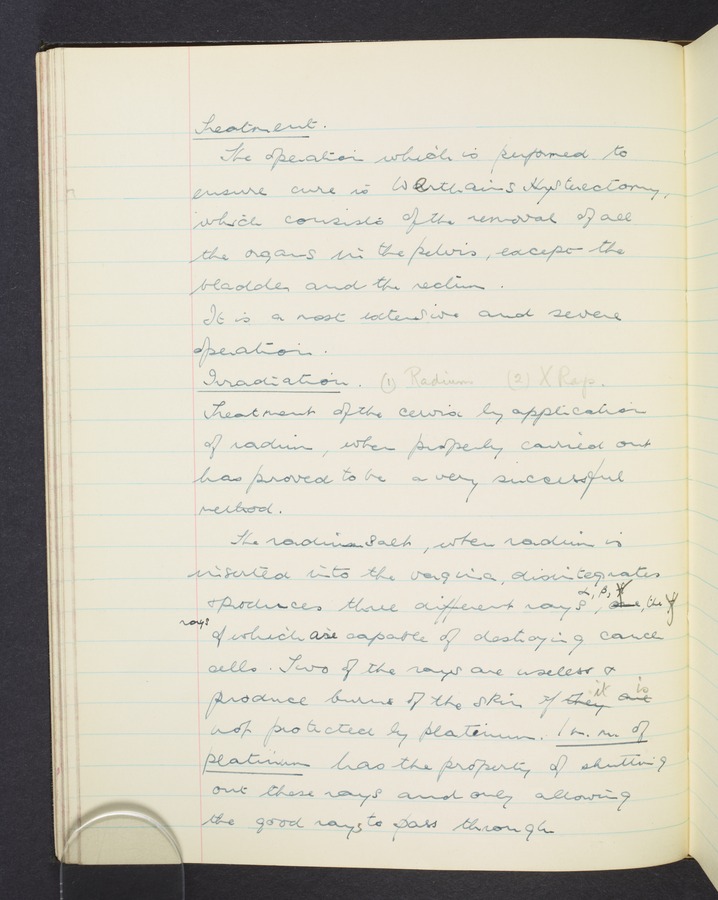 Treatment.
The operation which is performed to
ensure cure is Wertheim's Hysterectomy,
which consists of the removal of all
the organs in the pelvis, except the
bladder and the rectum.
It is a most extensive and severe
operation.
Irradiation. (1) Radium (2) X Rap.
Treatment of the cervix by application
of radium, when properly carried out
has proved to be a very successful
method.
The radium salt, when radium is
inserted into the vagina, disintegrates
α, β, γ
& produces three different rays, one, the γ
rays
of which are capable of destroying cance
cells. Two of the rays are useless &
it is
produce burns of the skin if they are
not protected by platinum. 1 m.m of
platinum has the property of shutting
out these rays and only allowing
the good rays to pass through